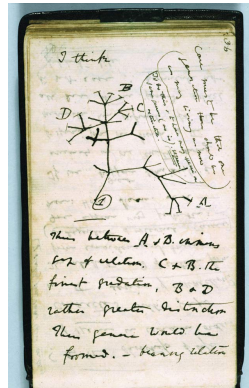 I think
36
Case must be that one
generation then should be
as many living as now
To do this & to have many species
in same genus (as is) requires
extinction.
B
C
D
A
1
Thus between A & B. immens
gap of relation. C & B. the
finest gradation, B & D
rather greater distinction
Thus genera would be
formed. — bearing relation